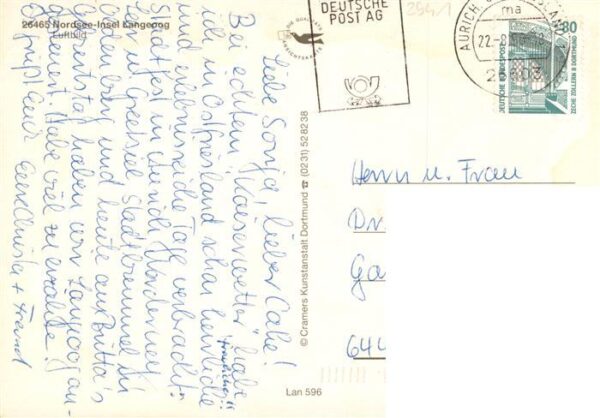 26465 Nordsee-Insel Langeoog
Luftbild
Liebe Sonja, lieber
Bei echtem "Kaiserwetter" habe
ich in Ostfriesland schon herrliche
und erlebnisreiche Tage verbracht:
Stadtfest in Aurich, Norderney,
in Greetsiel, Stadtbummel in
Norden und heute an Britta's
Geburtstag haben wir Langeoog an-
gesteuert. Habe viel zu erzählen!
Es grüßt Euch Eure Christa + Freund
© Cramers Kunstanstalt Dortmund ☎ (0231) 528238
Lan 596
DEUTSCHE
POST AG
2941
AURICH
ma
22.-8
26603
80
DEUTSCHE BUNDESPOST
ZECHE ZOLLERN II DORTMUND
Herrn u. Frau
Dr.
Ga
644